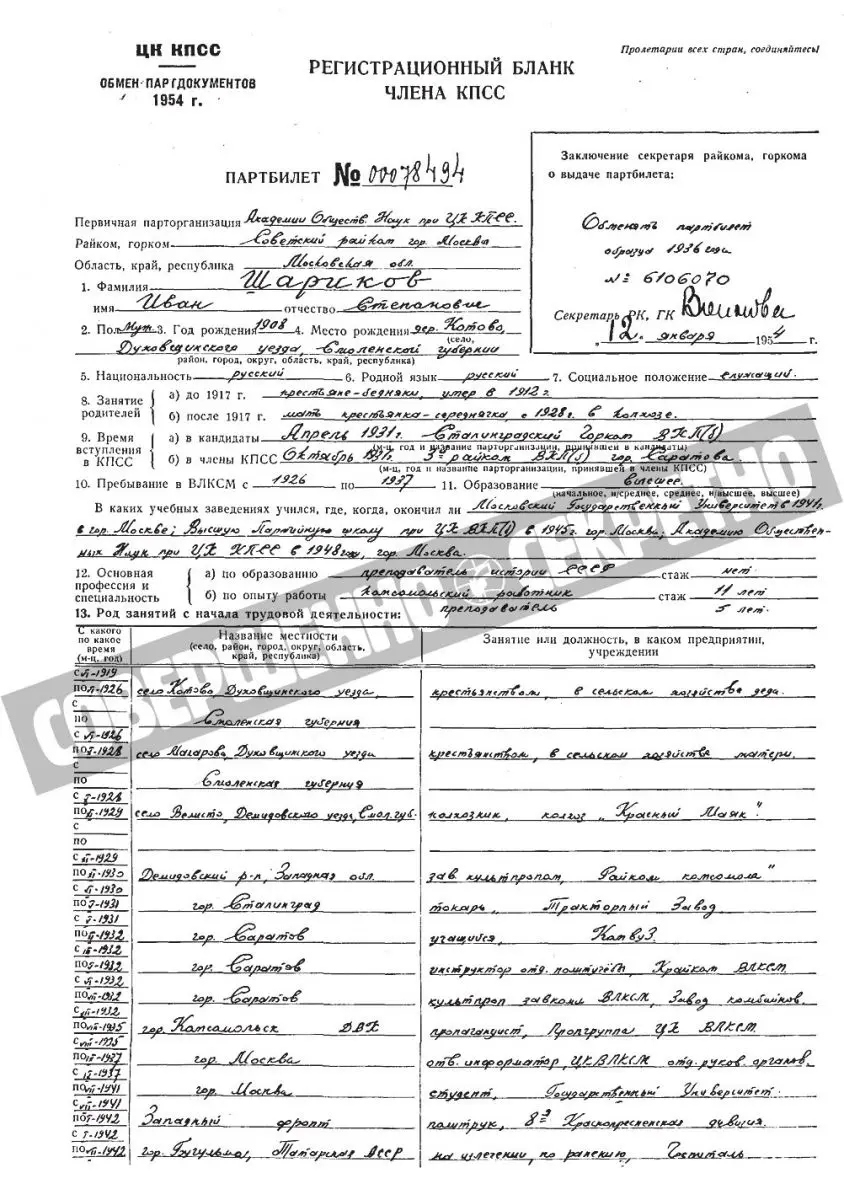 ЦК КПСС
ОБМЕН ПАРТДОКУМЕНТОВ
1954 г.
Пролетарии всех стран, соединяйтесь!
РЕГИСТРАЦИОННЫЙ БЛАНК
ЧЛЕНА КПСС
ПАРТБИЛЕТ № 00078494
Заключение секретаря райкома, горкома
о выдаче партбилета:
Обменять партбилет
образца 1936 года
№ 6106070
Секретарь РК, ГК
"12" января 1954 г.
Первичная парторганизация Академии Обществ. Наук при ЦК КПСС.
Райком, горком Советский райком гор. Москва
Область, край, республика Московская обл.
1. Фамилия Шариков
имя Иван отчество Степанович
2. Пол Муж. 3. Год рождения 1908 4. Место рождения дер. Котово,
(село,
Духовщинского уезда, Смоленской губернии
район, город, округ, область, край, республика)
5. Национальность русский 6. Родной язык русский 7. Социальное положение служащий.
8. Занятие родителей
а) до 1917 г. крестьяне-бедняки, умер в 1912 г.
б) после 1917 г. мать крестьянка-середнячка, с 1928 г. в колхозе.
9. Время вступления в КПСС
а) в кандидаты Апрель 1931 г. Сталинградский Горком ВКП(б)
(м-ц, год и название парторганизации, принявшей в кандидаты)
б) в члены КПСС Октябрь 1931 г. 3й райком ВКП(б) гор. Саратова.
(м-ц, год и название парторганизации, принявшей в члены КПСС)
10. Пребывание в ВЛКСМ с 1926 по 1937 11. Образование высшее.
(начальное, н/среднее, среднее, н/высшее, высшее)
В каких учебных заведениях учился, где, когда, окончил ли Московский Государственный Университет в 1941 г.
в гор. Москве; Высшую Партийную школу при ЦК ВКП(б) в 1945 г. гор. Москва; Академию Обществен-
ных Наук при ЦК КПСС в 1948 году, гор. Москва.
12. Основная профессия и специальность
а) по образованию преподаватель истории СССР стаж нет.
б) по опыту работы комсомольский работник стаж 11 лет
преподаватель 5 лет.
13. Род занятий с начала трудовой деятельности:
С какого по какое время (м-ц, год)
Название местности
(село, район, город, округ, область, край, республика)
Занятие или должность, в каком предприятии, учреждении
СОВЕРШЕННО СЕКРЕТНО
с 1919
по 1926 село Котово, Духовщинского уезда, крестьянством, в сельском хозяйстве деда.
с
по Смоленская губерния
с 1926
по 1928 село Макарово, Духовщинского уезда крестьянством, в сельском хозяйстве матери.
с
по Смоленская губерния
с 1928
по 1929 село Велисто, Демидовского уезда, Смол. губ. колхозник, колхоз "Красный Маяк".
с
по
с 1929
по 1930 Демидовский р-н, Западная обл. зав. культпропом, Райком комсомола"
с 1930
по 1931 гор. Сталинград токарь, Тракторный Завод
с 1931
по 1932 гор. Саратов учащийся, КомвУЗ.
с 1932
по 1932 гор. Саратов инструктор отд. политучёбы, Крайком ВЛКСМ.
с 1932
по 1932 гор. Саратов культпроп завкома ВЛКСМ, Завод комбайнов.
с 1932
по 1935 гор. Комсомольск ДВК пропагандист, Пропгруппа ЦК ВЛКСМ
с 1935
по 1937 гор. Москва отв. информатор, ЦК ВЛКСМ отд. руков. органов.
с 1937
по 1941 гор. Москва студент, Государственный Университет.
с 1941
по 1942 Западный фронт политрук, 8я Краснопресненская дивизия.
с 1942
по 1942 гор. Бугульма, Татарская АССР на излечении, по ранению, Госпиталь